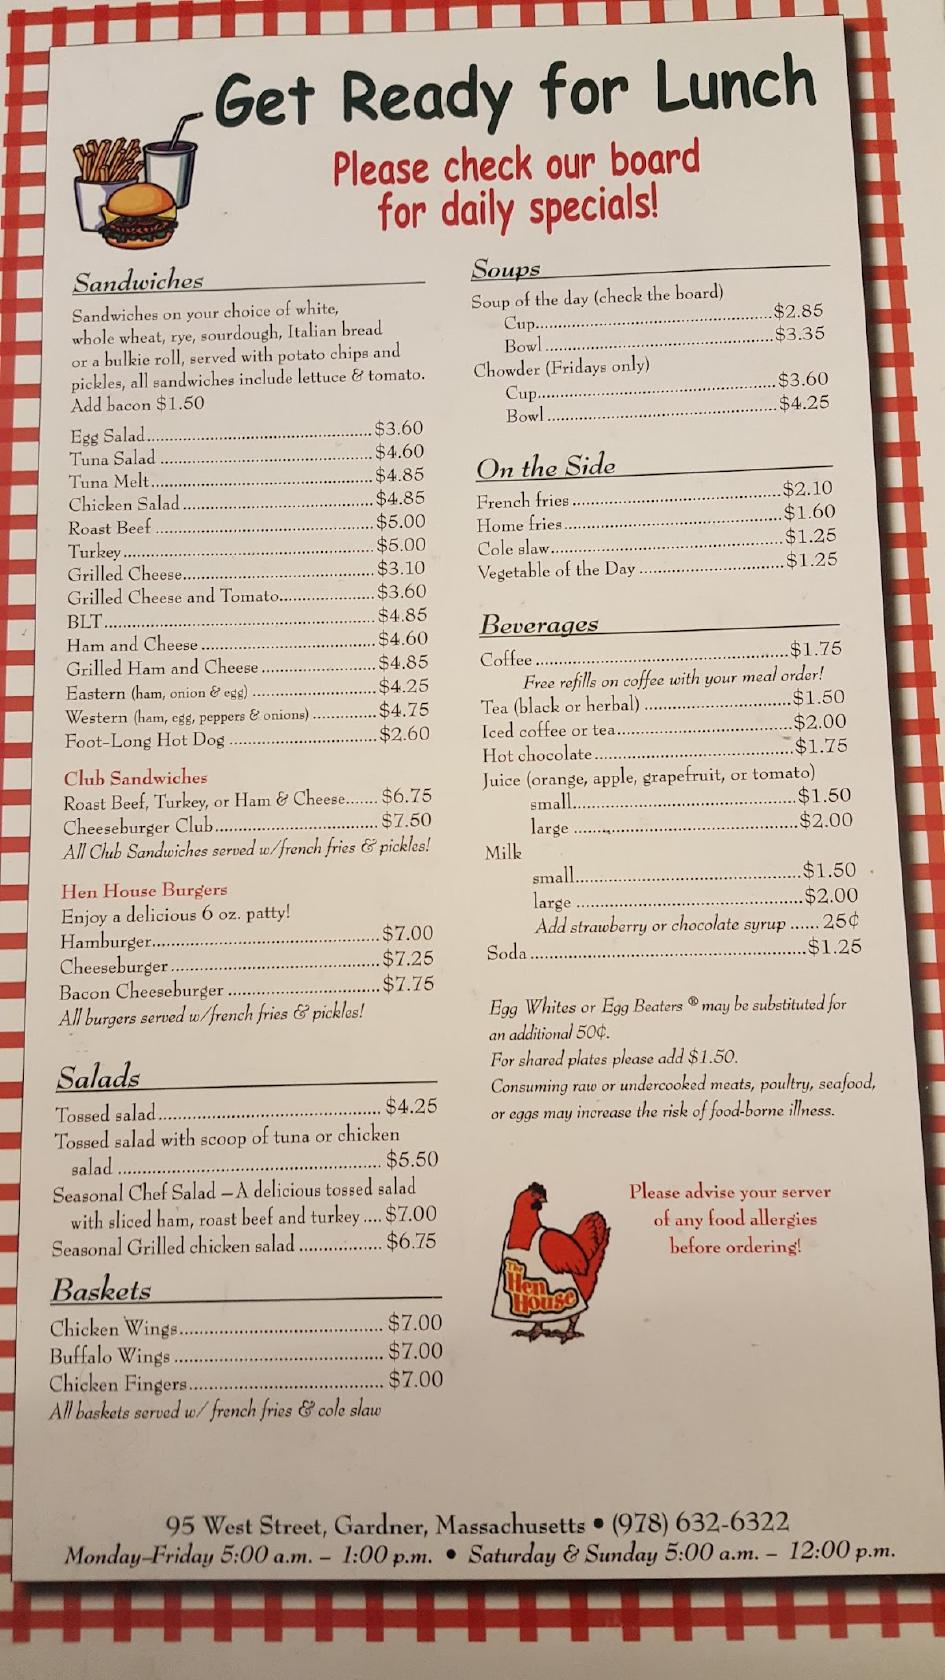 Get Ready for Lunch
Please check our board
for daily specials!
Sandwiches
Sandwiches on your choice of white,
whole wheat, rye, sourdough, Italian bread
or a bulkie roll, served with potato chips and
pickles, all sandwiches include lettuce & tomato.
Add bacon $1.50
Egg Salad $3.60
Tuna Salad $4.60
Tuna Melt $4.85
Chicken Salad $4.85
Roast Beef $5.00
Turkey $5.00
Grilled Cheese $3.10
Grilled Cheese and Tomato $3.60
BLT $4.85
Ham and Cheese $4.60
Grilled Ham and Cheese $4.85
Eastern (ham, onion & egg) $4.25
Western (ham, egg, peppers & onions) $4.75
Foot-Long Hot Dog $2.60
Club Sandwiches
Roast Beef, Turkey, or Ham & Cheese $6.75
Cheeseburger Club $7.50
All Club Sandwiches served w/french fries & pickles!
Hen House Burgers
Enjoy a delicious 6 oz. patty!
Hamburger $7.00
Cheeseburger $7.25
Bacon Cheeseburger $7.75
All burgers served w/french fries & pickles!
Salads
Tossed salad $4.25
Tossed salad with scoop of tuna or chicken
salad $5.50
Seasonal Chef Salad – A delicious tossed salad
with sliced ham, roast beef and turkey $7.00
Seasonal Grilled chicken salad $6.75
Baskets
Chicken Wings $7.00
Buffalo Wings $7.00
Chicken Fingers $7.00
All baskets served w/ french fries & cole slaw
Soups
Soup of the day (check the board)
Cup $2.85
Bowl $3.35
Chowder (Fridays only)
Cup $3.60
Bowl $4.25
On the Side
French fries $2.10
Home fries $1.60
Cole slaw $1.25
Vegetable of the Day $1.25
Beverages
Coffee $1.75
Free refills on coffee with your meal order!
Tea (black or herbal) $1.50
Iced coffee or tea $2.00
Hot chocolate $1.75
Juice (orange, apple, grapefruit, or tomato)
small $1.50
large $2.00
Milk
small $1.50
large $2.00
Add strawberry or chocolate syrup 25¢
Soda $1.25
Egg Whites or Egg Beaters ® may be substituted for
an additional 50¢.
For shared plates please add $1.50.
Consuming raw or undercooked meats, poultry, seafood,
or eggs may increase the risk of food-borne illness.
The
Hen
House
Please advise your server
of any food allergies
before ordering!
95 West Street, Gardner, Massachusetts • (978) 632-6322
Monday–Friday 5:00 a.m. – 1:00 p.m. • Saturday & Sunday 5:00 a.m. – 12:00 p.m.